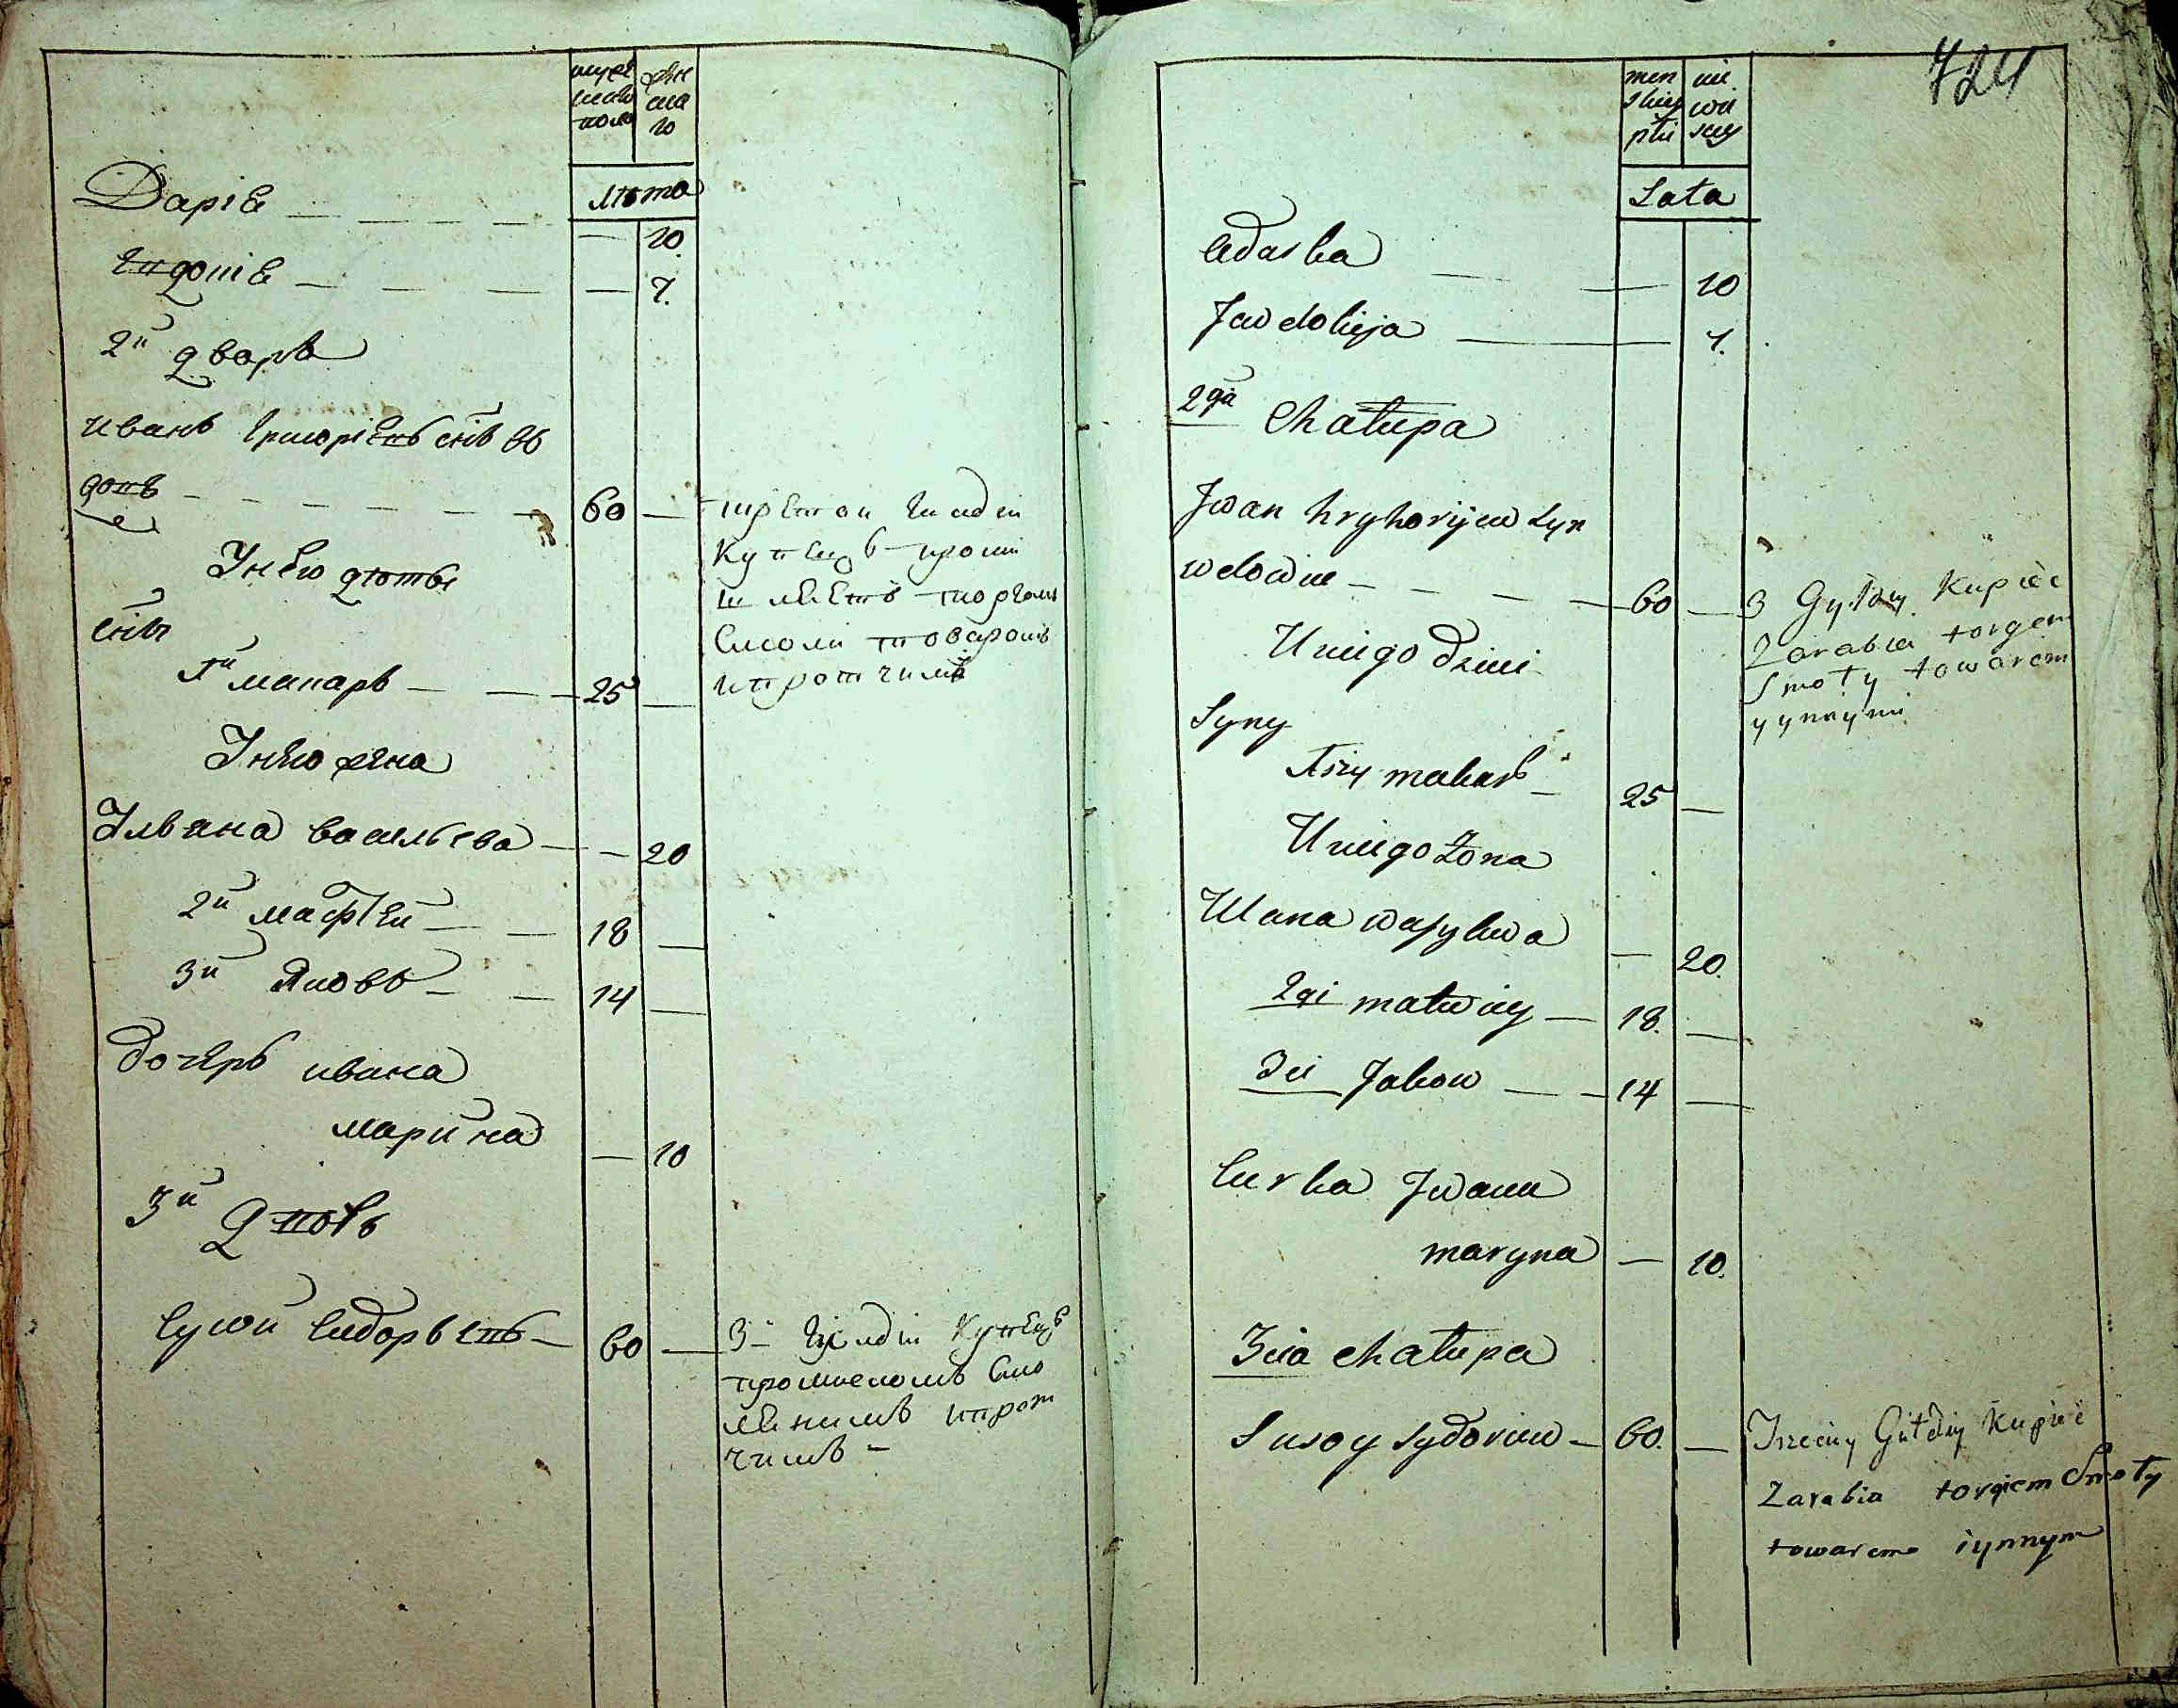 мужеска полу
женска го
лѣта
Дарія — 10.
Евдокія — 7.
2й дворъ
Иванъ Григоріевъ сынъ вдовъ — 60 — третей гилдіи
купецъ промышляетъ торгомъ
смоли товаромъ
и протчимъ
У нево дѣти
сынъ
1й Макаръ — 25 —
У нево жена
Ульяна Васильева — 20
2й Матфей — 18 —
3й Яковъ — 14 —
дочеръ Ивана
Марина — 10
3й дворъ
Сусой Сидоровъ — 60 — 3 гилдіи купецъ
промысломъ смо
и прот
чимъ —
724
men skiey płci
nie wia sciey
Lata
Odarka — 10
Jewdokija — 7.
2ga Chałupa
Jwan hryhoryiew Syn
wdowiec — 60 — 3 Gyldy Kupiec
Zarabia torgem
Smoły towarem
y ynnymi
U niego dzieci
Syny
1szy makar — 25 —
U niego Żona
Ulana wasylewa — 20.
2gi matwiey — 18. —
3ci Jakow — 14 —
Curka Jwana
maryna — 10.
3cia chałupa
Susoy Sydoriew — 60. — Trzeciey Gildiy Kupiec
Zarabia torgiem Smoły
towarem iynnym